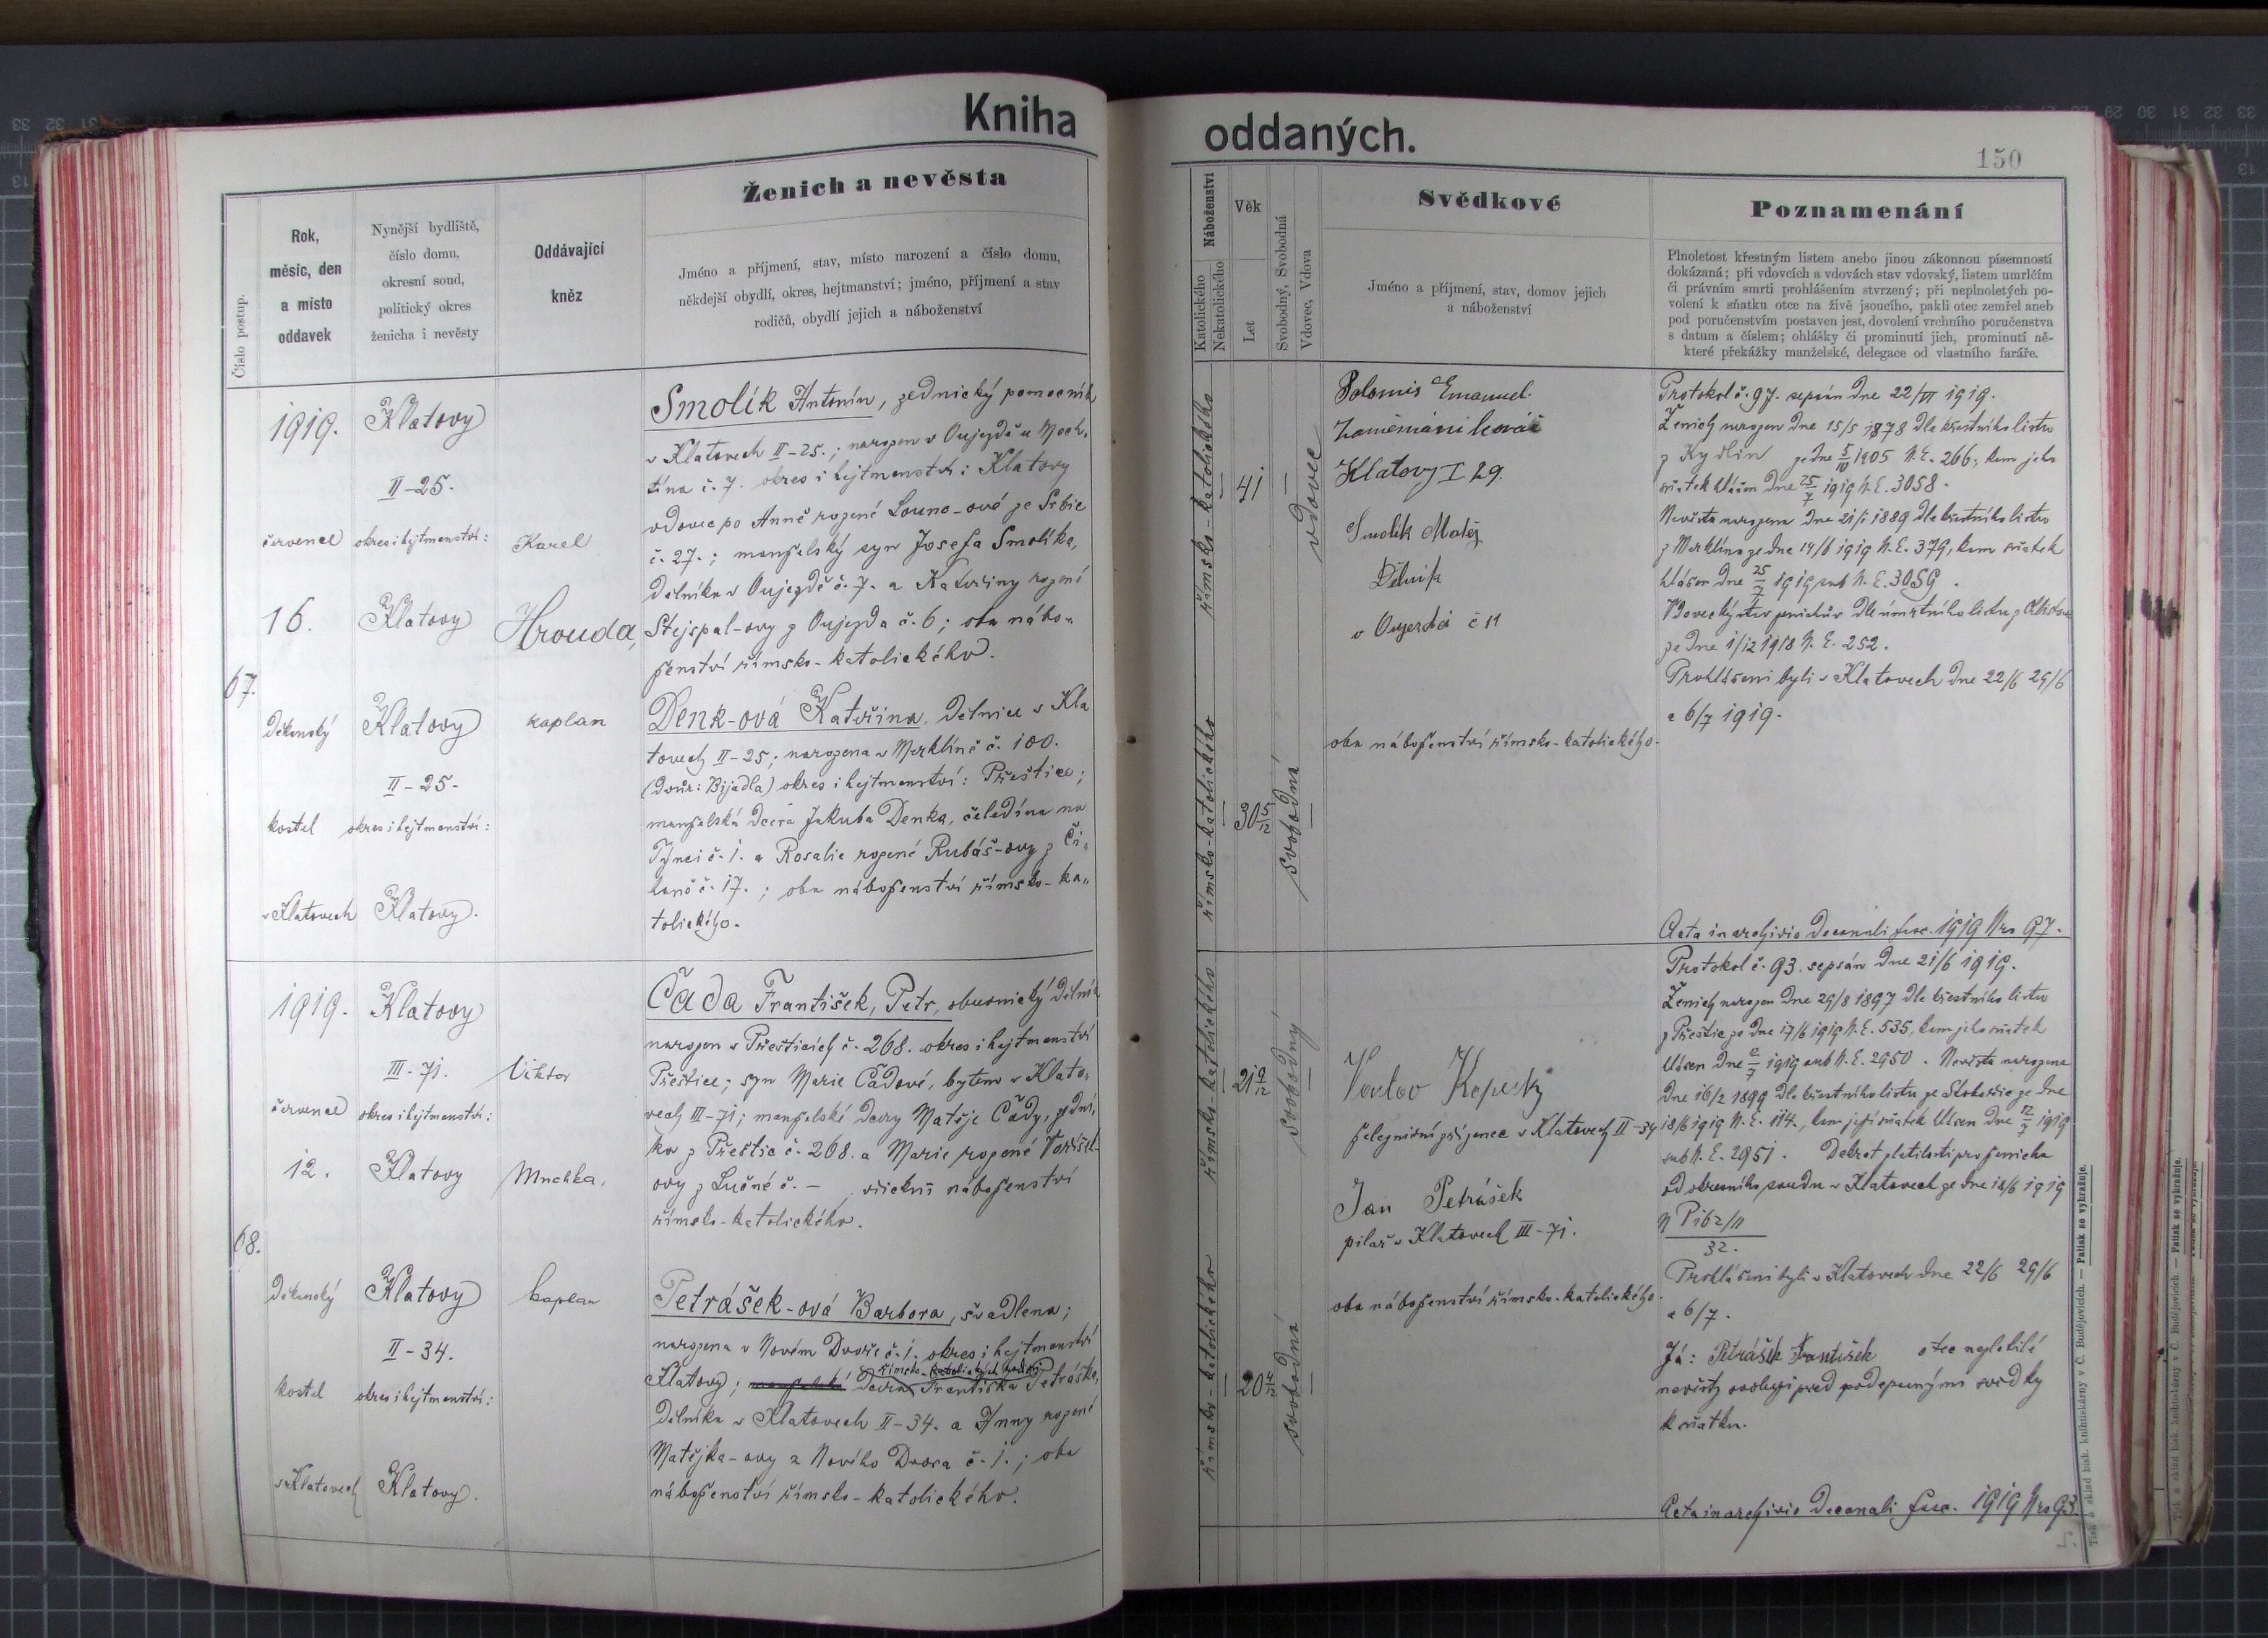 Kniha
oddaných.
150
Číslo postup.
Rok,
měsíc, den
a místo
oddavek
Nynější bydliště,
číslo domu,
okresní soud,
politický okres
ženicha i nevěsty
Oddávající
kněz
Ženich a nevěsta
Jméno a příjmení, stav, místo narození a číslo domu,
někdejší obydlí, okres, hejtmanství; jméno, příjmení a stav
rodičů, obydlí jejich a náboženství
Náboženství
Katolického
Nekatolického
Věk
Let
Svobodný, Svobodná
Vdovec, Vdova
Svědkové
Jméno a příjmení, stav, domov jejich
a náboženství
Poznamenání
Plnoletost křestným listem anebo jinou zákonnou písemností
dokázaná; při vdovcích a vdovách stav vdovský, listem umrlčím
či právním smrti prohlášením stvrzený; při neplnoletých po-
volení k sňatku otce na živě jsoucího, pakli otec zemřel aneb
pod poručenstvím postaven jest, dovolení vrchního poručenstva
s datum a číslem; ohlášky či prominutí jich, prominutí ně-
které překážky manželské, delegace od vlastního faráře.
67.
1919.
červenec
16.
Děkanský
kostel
v Klatovech
Klatovy
II-25.
okres i hejtmanství:
Klatovy
Klatovy
II-25.
okres i hejtmanství:
Klatovy.
Karel
Hrouda,
kaplan
Smolík Antonín, zednický pomocník
v Klatovech II-25.; narozen v Oujezdě u Moch-
tína č. 7. okres i hejtmanství: Klatovy
vdovec po Anně rozené Louno-ové ze Srbic
č. 27.; manželský syn Josefa Smolíka,
dělníka v Oujezdě č. 7. a Kateřiny rozené
Stejspal-ovy z Oujezda č. 6; oba nábo-
ženství římsko-katolického.
Denk-ová Kateřina, dělnice v Kla
tovech II-25; narozena v Merklíně č. 100.
(dvůr: Bijadla) okres i hejtmanství: Přeštice;
manželská dcera Jakuba Denka, čeledína na
Týnci č. 1. a Rosalie rozené Rubáš-ovy z
č. 17.; oba náboženství římsko-ka-
tolického.
římsko-katolického
41
vdovec
římsko-katolického
30 5/12
svobodná
Emanuel
Klatovy I 29.
Smolík Matěj
Dělník
v Oujezdě č 11
oba náboženství římsko-katolického.
Protokol č. 97. sepsán dne 22/VI 1919.
Ženich narozen dne 15/5 1878 dle křestního listu
z Kydlin ze dne 5/10 1905 N. E. 266., kam jeho
sňatek hlášen dne 25/7 1919 N. E. 3058.
Nevěsta narozena dne 21/1 1889 dle křestního listu
z Merklína ze dne 14/6 1919 N. E. 379, kam sňatek
hlášen dne 25/7 1919 sub N. E. 3059.
Vdovecký stav ženichův dle úmrtního listu z
ze dne 1/12 1918 N. E. 252.
Prohlášeni byli v Klatovech dne 22/6 29/6
a 6/7 1919.
Acta in archivio decanali fasc. 1919 Nro 97.
68.
1919.
červenec
12.
Děkanský
kostel
v Klatovech
Klatovy
III-71.
okres i hejtmanství:
Klatovy
Klatovy
II-34.
okres i hejtmanství:
Klatovy.
Viktor
Mnchka,
kaplan
Čada František, Petr, obuvnický dělník
narozen v Přešticích č. 268. okres i hejtmanství
Přeštice; syn Marie Čadové, bytem v Klato-
vech III-71; manželské dcery Matěje Čady, zední-
ka z Přeštic č. 268. a Marie rozené
ovy z Lučné č. — všichni náboženství
římsko-katolického.
Petrášek-ová Barbora, švadlena;
narozena v Novém Dvoře č. 1. okres i hejtmanství
Klatovy; manželská dcera Františka Petráška,
dělníka v Klatovech II-34. a Anny rozené
Matějka-ovy z Nového Dvora č. 1.; oba
náboženství římsko-katolického.
římsko-katolického
21 9/12
svobodný
římsko-katolického
20 4/12
svobodná
Václav Kopecký
železniční zřízenec v Klatovech II-34
Jan Petrášek
pilař v Klatovech III-71.
oba náboženství římsko-katolického.
Protokol č. 93. sepsán dne 21/6 1919.
Ženich narozen dne 29/8 1897 dle křestního listu
z Přeštic ze dne 17/6 1919 N. E. 535, kam jeho sňatek
hlášen dne 12/7 1919 sub N. E. 2950. Nevěsta narozena
dne 16/2 1899 dle křestního listu ze Stobořic ze dne
18/6 1919 N. E. 114., kam její sňatek hlášen dne 12/7 1919
sub N. E. 2951. Dekret pro ženicha
od okresního soudu v Klatovech ze dne 18/6 1919
P 162/11
32.
Prohlášeni byli v Klatovech dne 22/6 29/6
a 6/7.
Já: Petrášek František otec nezletilé
nevěsty svoluji před podepsanými svědky
k sňatku.
Acta in archivio decanali fasc. 1919 Nro 93.
Tisk a sklad bisk. knihtiskárny v Č. Budějovicích. — Patisk se vyhražuje.